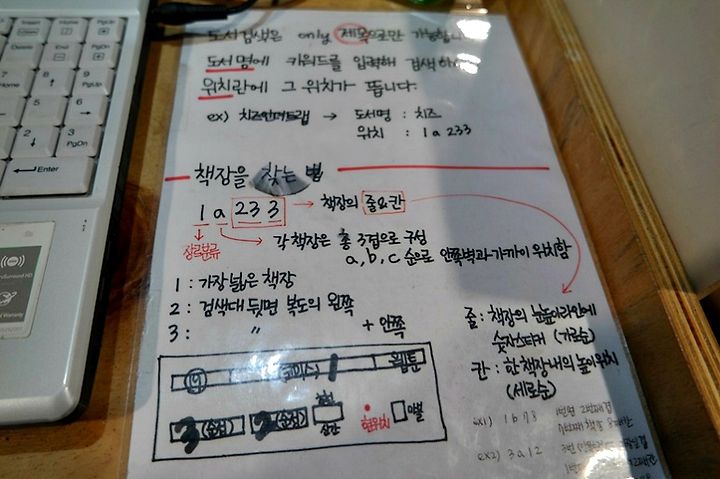 도서검색은 only 제목으로만 가능합니
도서명에 키워드를 입력해 검색하
위치란에 그 위치가 뜹니다.
ex) 치즈인더트랩 → 도서명 : 치즈
위치 : 1a 233
책장을 찾는 법
1 a 23 3 → 책장의 줄&칸
장르분류
각 책장은 총 3겹으로 구성
a, b, c 순으로 안쪽벽과 가까이 위치함
1 : 가장 넓은 책장
2 : 검색대 뒷면 복도의 왼쪽
3 : 〃 + 안쪽
줄 : 책장의 눈높이라인에
숫자스티커 (가로순)
칸 : 한 책장 내의 높이위치
(세로순)
1 웹툰
3 (순정) 2 (순정)
현위치
ex1) 1 b 7 8
ex2) 3 a 1 2
Insert
Home
PgUp
Delete
End
PgDn
Home
PgUp
PgDn
Enter